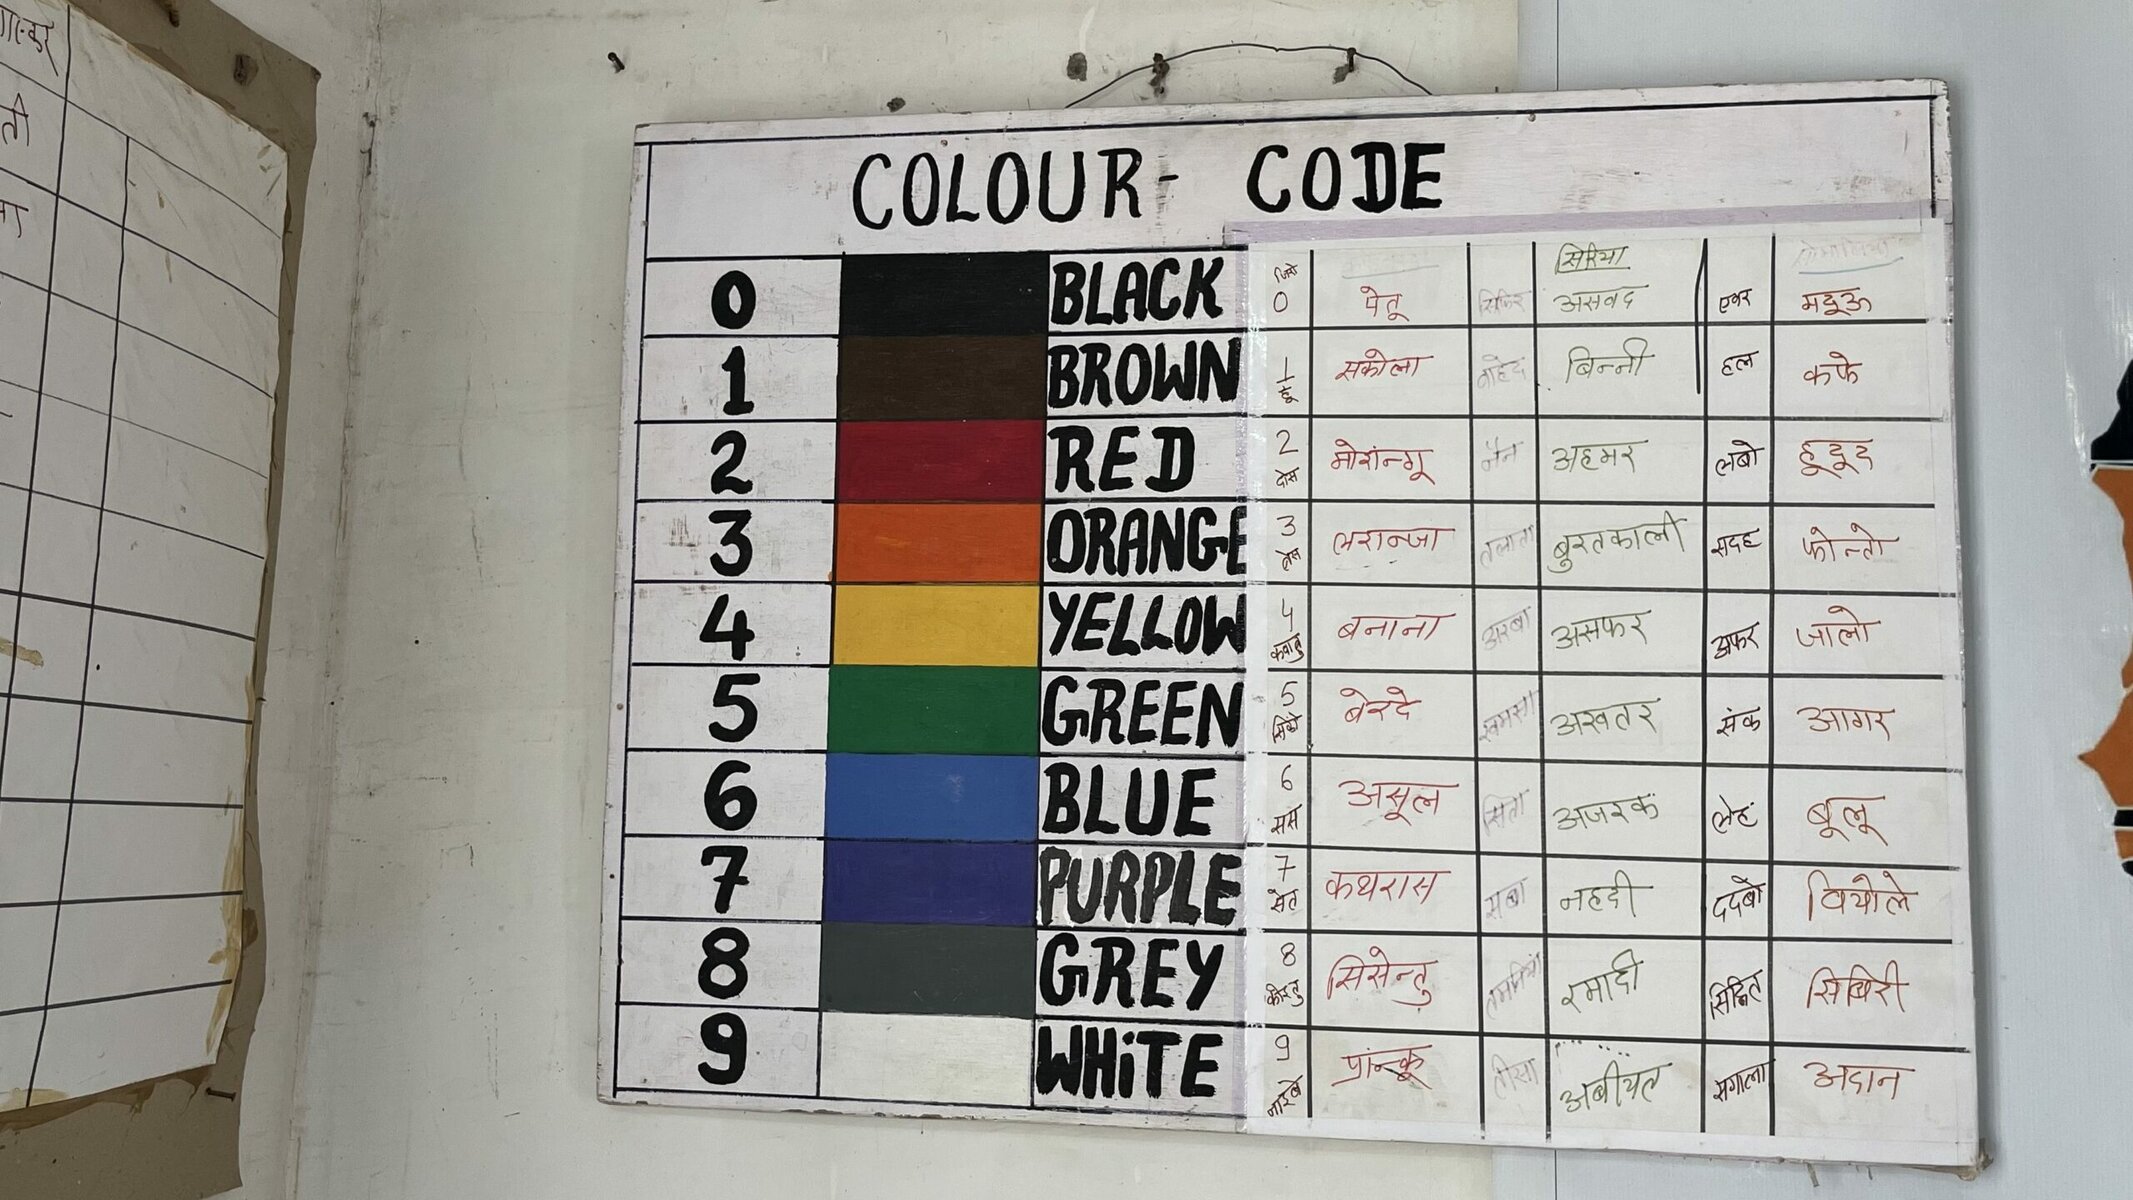 COLOUR- CODE
सिरिया
0 BLACK 0 पेतू सिफिर असवद एवर मदूऊ
1 BROWN 1 सकोला वाहेद बिन्नी हल कफे
2 RED 2 दोस मोरान्गू अहमर लबो हूदूद
3 ORANGE 3 लरान्जा तलाता बुरतकाली सदह फोन्तो
4 YELLOW 4 बनाना अरबा असफर अफर जालो
5 GREEN 5 बेरदे खमसा अखतर संक आगर
6 BLUE 6 सस असूल सिता अजरक लेह बूलू
7 PURPLE 7 सेत कथरास सबा नहदी ददबो वियोले
8 GREY 8 सिसेन्तु रमादी सिबिरी
9 WHiTE 9 प्रान्कू तीसा अबीयत सगाला अदान
ती